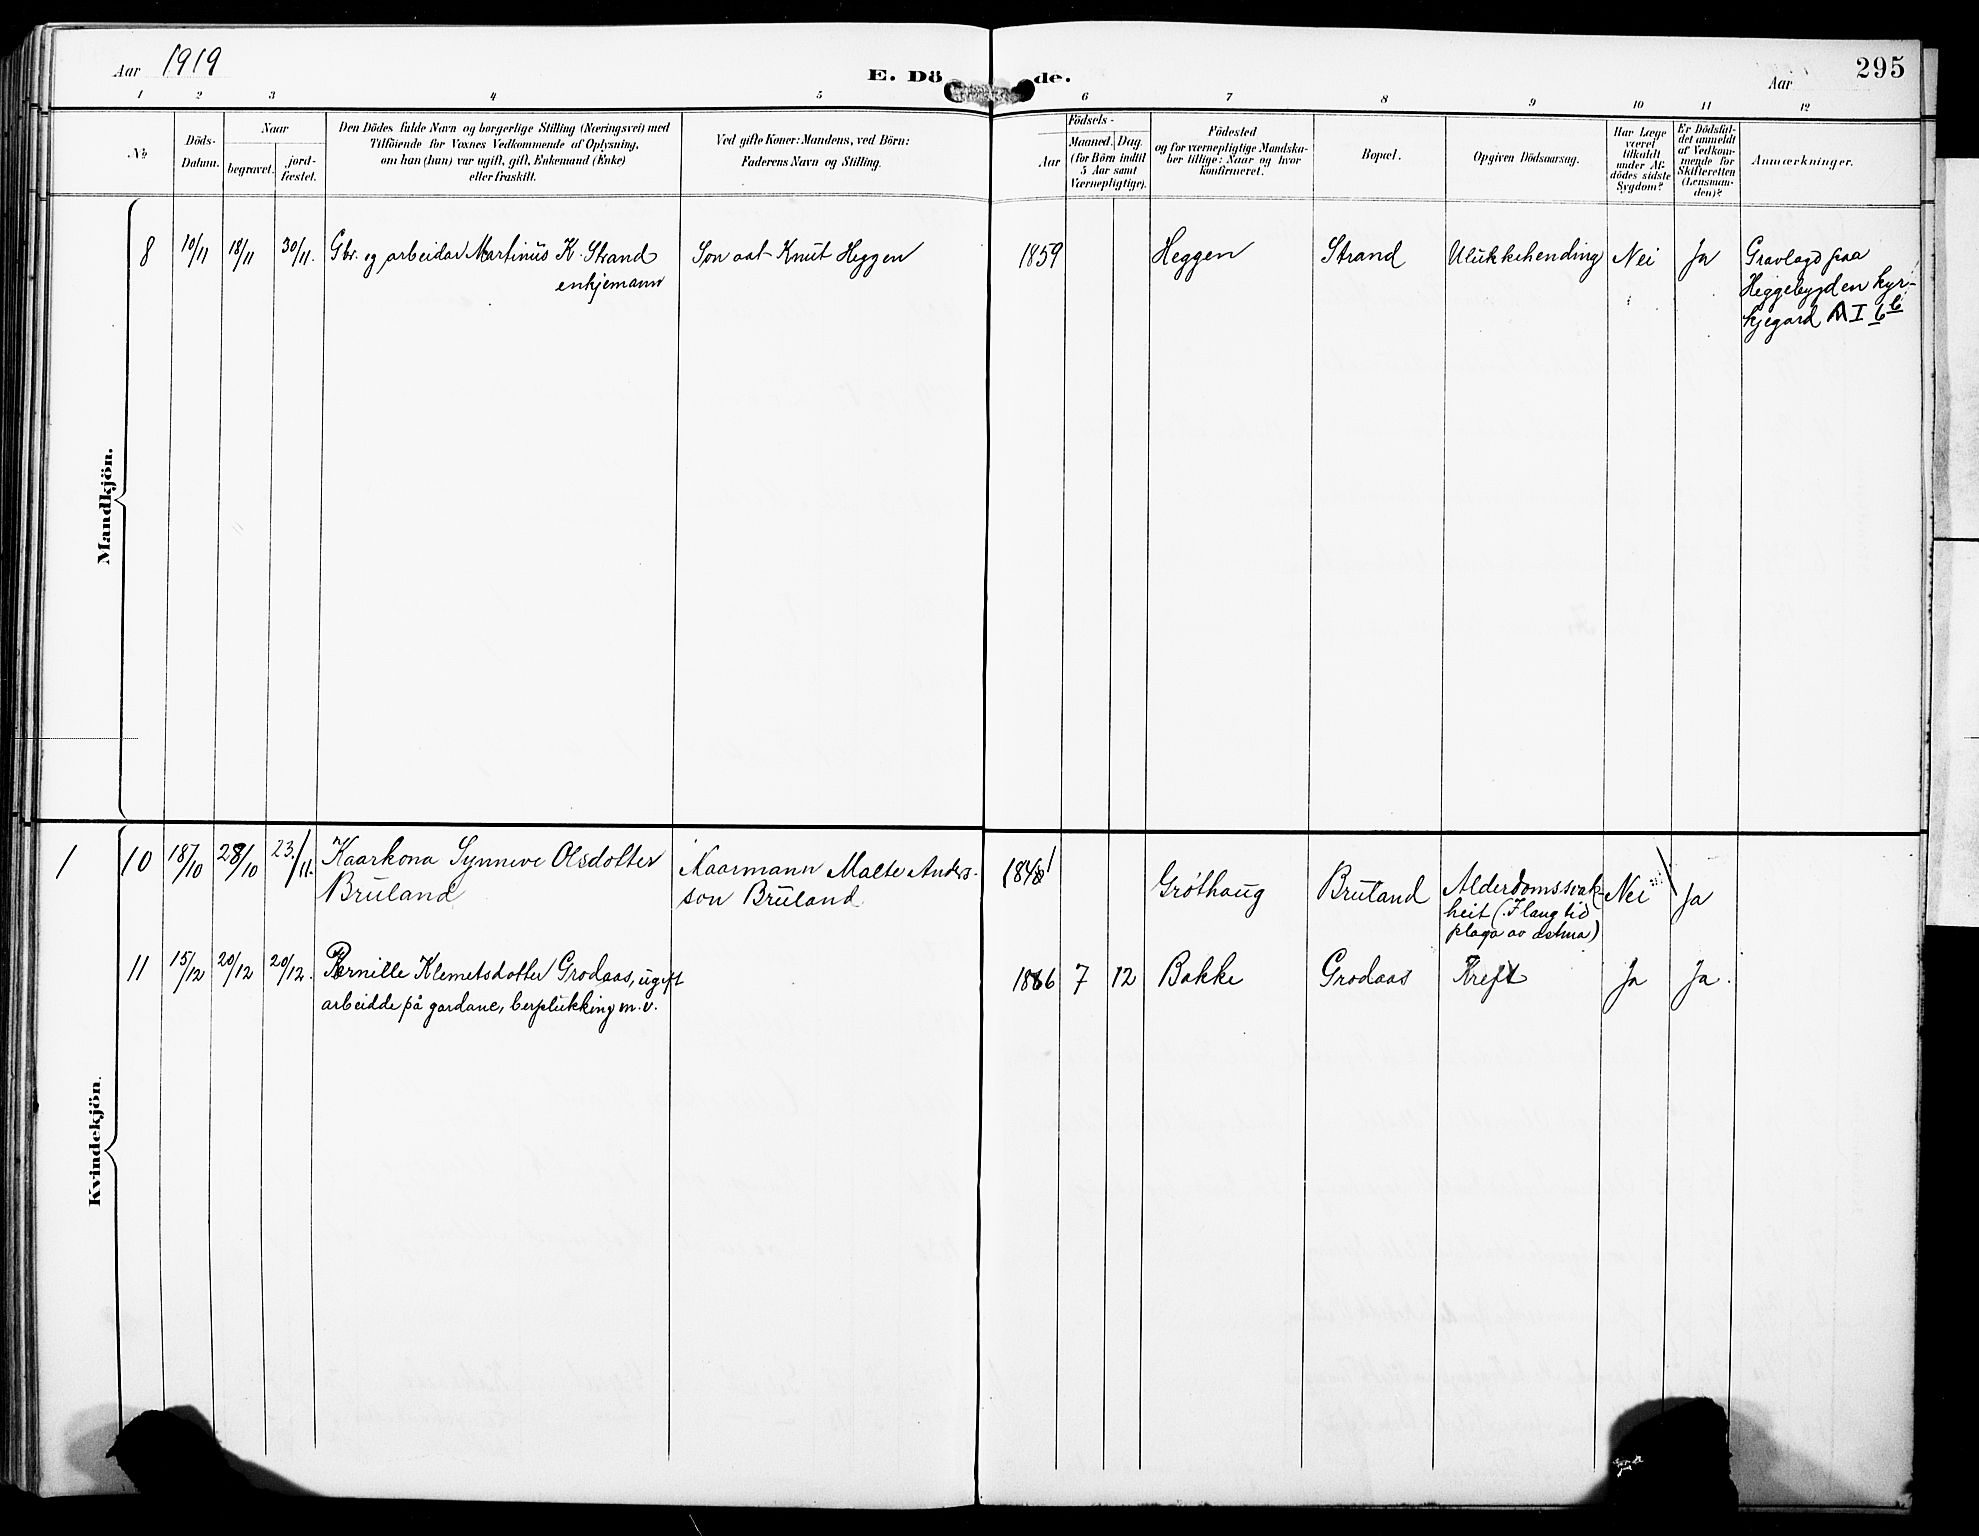 Aar 1919
E. Döde.
Aar
295
1 2 3 4 5 6 7 8 9 10 11 12
No.
Döds-
Datum.
Naar
begravet.
jord-
fæstet.
Den Dödes fulde Navn og borgerlige Stilling (Næringsvei) med
Tilföiende for Voxnes Vedkommende af Oplysning,
om han (hun) var ugift, gift, Enkemand (Enke)
eller fraskilt.
Ved gifte Koner: Mandens, ved Börn:
Faderens Navn og Stilling.
Födsels-
Aar
Maaned. Dag.
(for Börn indtil
5 Aar samt
Værnepligtige).
Födested
og for værnepligtige Mandska-
ber tillige: Naar og hvor
konfirmeret.
Bopæl.
Opgiven Dödsaarsag.
Har Læge
været
tilkaldt
under Af-
dödes sidste
Sygdom?
Er Dödsfal-
det anmeldt
af Vedkom-
mende for
Skifteretten
(Lensman-
den)?
Anmærkninger.
Mandkjön.
8 10/11 18/11 30/11. Gbr. og arbeidar Martinus K. Strand Son aat Knut Heggen 1859 Heggen Strand Ulukkehending Nei Ja Gravlagd paa
enkjemann Heggebygden kyr-
kjegard A I 6 b
Kvindekjön.
1 10 18/10 28/10 23./11. Kaarkona Synneve Olsdotter Kaarmann Malte Anders- 1848 Grøthaug Bruland Alderdomssvak- Nei Ja
Bruland son Bruland heit (I lang tid
plaga av astma)
11 15/12 20/12 20/12. Pernille Klemetsdotter Grodaas, ugift 1866 7 12 Bakke Grodaas Kreft Ja Ja.
arbeidde på gardane, berplukking m.v.